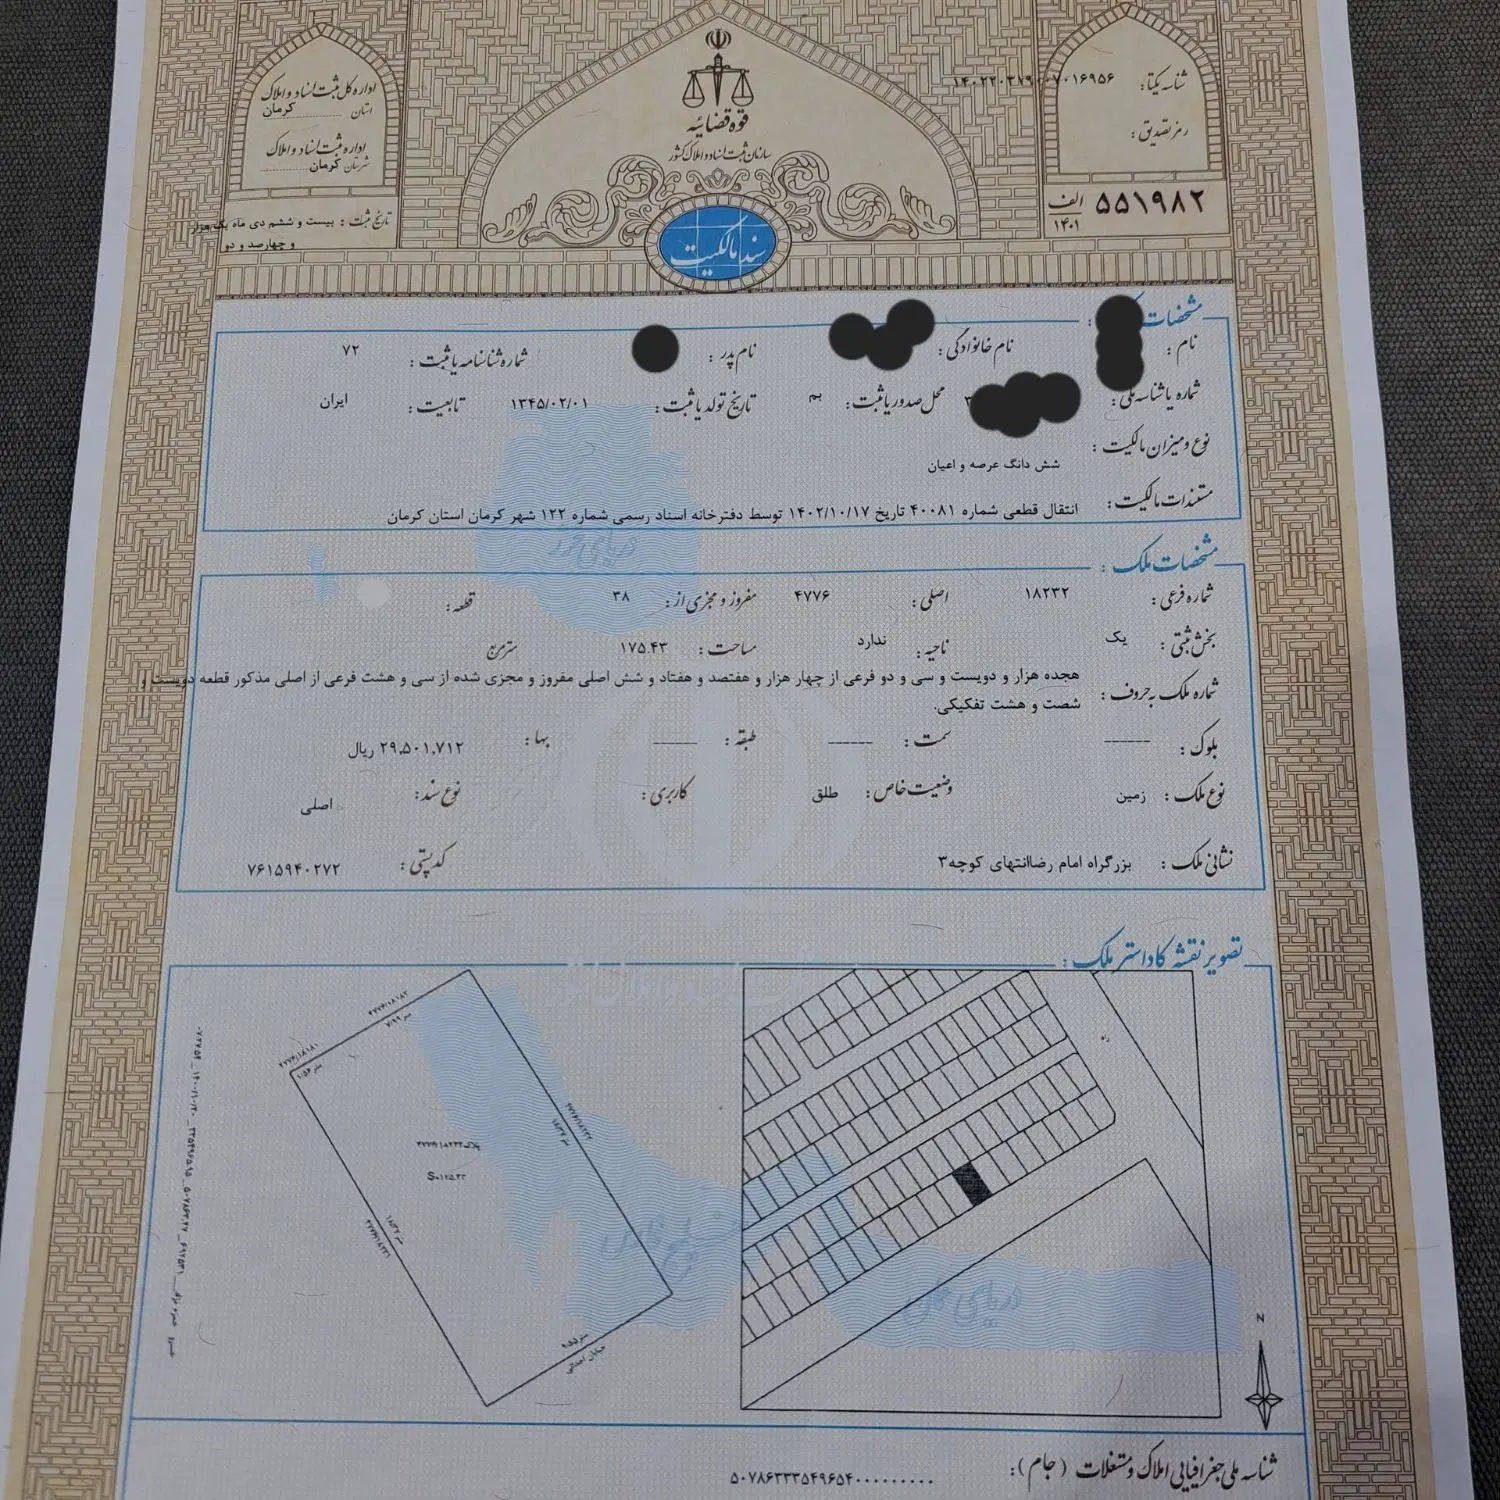 قوه قضائیه
سازمان ثبت اسناد و املاک کشور
سند مالکیت
شناسه یکتا: ۱۴۰۲۲۰۳۱۹۰۰۷۰۱۶۹۵۶
رمز تصدیق:
۵۵۱۹۸۲ الف
۱۴۰۱
اداره کل ثبت اسناد و املاک
استان کرمان
اداره ثبت اسناد و املاک
شهرستان کرمان
تاریخ ثبت: بیست و ششم دی ماه یک هزار
و چهارصد و دو
مشخصات
نام: نام خانوادگی: نام پدر: شماره شناسنامه یا ثبت: ۷۲
شماره یا شناسه ملی: محل صدور یا ثبت: بم تاریخ تولد یا ثبت: ۱۳۴۵/۰۲/۰۱ تابعیت: ایران
نوع و میزان مالکیت: شش دانگ عرصه و اعیان
مستندات مالکیت: انتقال قطعی شماره ۴۰۰۸۱ تاریخ ۱۴۰۲/۱۰/۱۷ توسط دفترخانه اسناد رسمی شماره ۱۲۲ شهر کرمان استان کرمان
مشخصات ملک:
شماره فرعی: ۱۸۲۳۲ اصلی: ۴۷۷۶ مفروز و مجزی از: ۳۸ قطعه:
بخش ثبتی: یک ناحیه: ندارد مساحت: ۱۷۵.۴۳ مترمربع
شماره ملک به حروف: هجده هزار و دویست و سی و دو فرعی از چهار هزار و هفتصد و هفتاد و شش اصلی مفروز و مجزی شده از سی و هشت فرعی از اصلی مذکور قطعه دویست و
شصت و هشت تفکیکی.
بلوک: ------ سمت: ------ طبقه: ------ بها: ۲۹,۵۰۱,۷۱۲ ریال
نوع ملک: زمین وضعیت خاص: طلق کاربری: نوع سند: اصلی
نشانی ملک: بزرگراه امام رضاانتهای کوچه۳ کدپستی: ۷۶۱۵۹۴۰۲۷۲
تصویر نقشه کاداستر ملک:
راه
N
پلاک ۴۷۷۶/۱۸۲۳۲
S=۱۷۵.۴۳
خیابان احداثی
دریای خزر
خلیج فارس
دریای عمان
شناسه ملی جغرافیایی املاک و مستغلات (جام): ۵۰۷۸۶۳۳۳۵۴۹۶۵۴۰۰۰۰۰۰۰۰۰۰